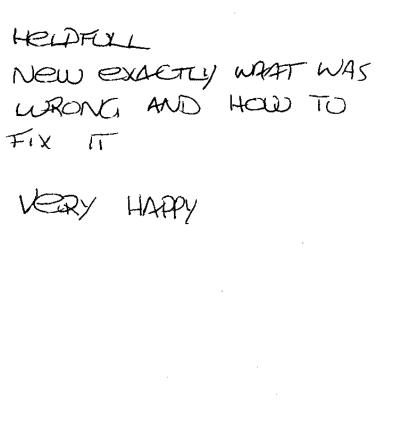 HELPFULL
NEW EXACTLY WHAT WAS
WRONG AND HOW TO
FIX IT
VERY HAPPY